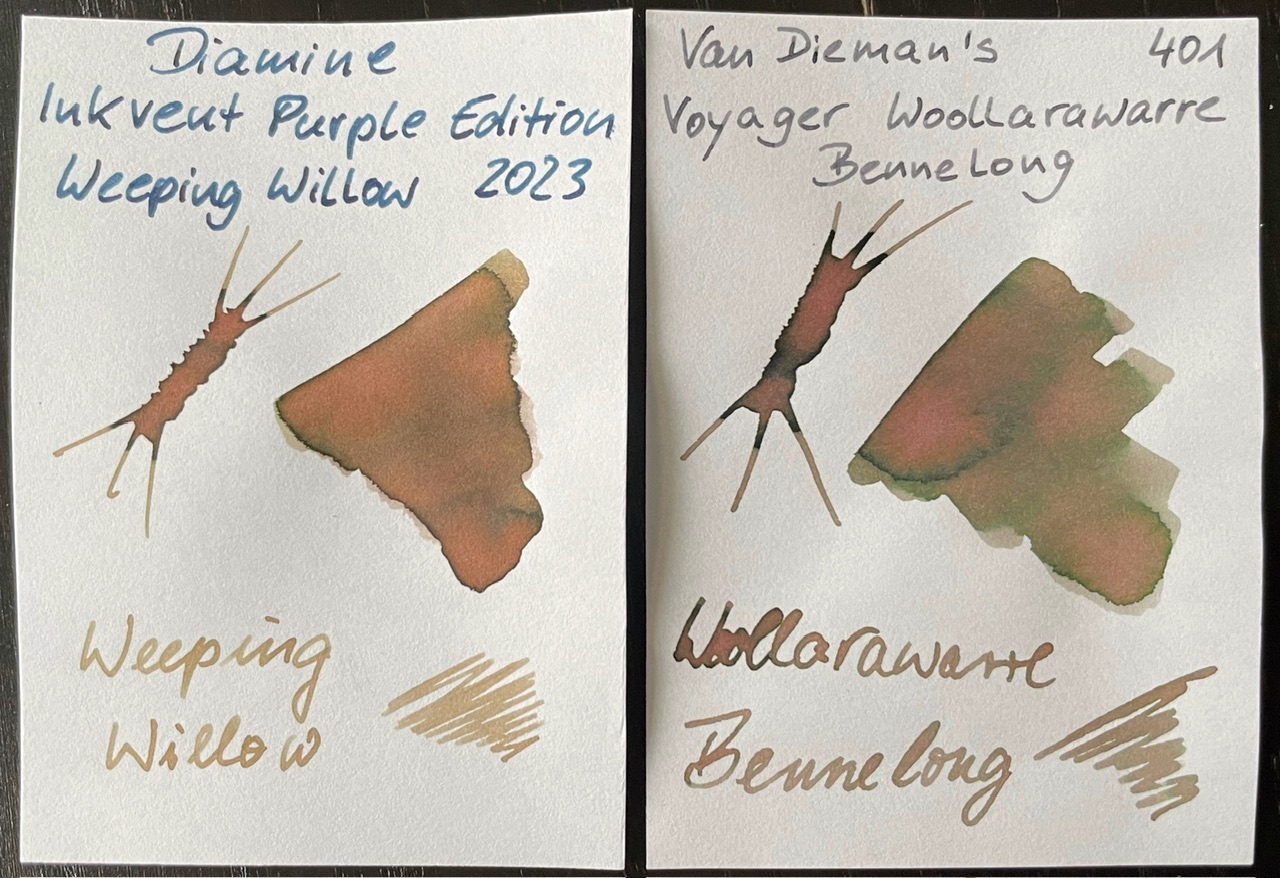 Diamine
Inkvent Purple Edition
Weeping Willow 2023
Weeping
Willow
Van Dieman's 401
Voyager Woollarawarre
Bennelong
Woollarawarre
Bennelong